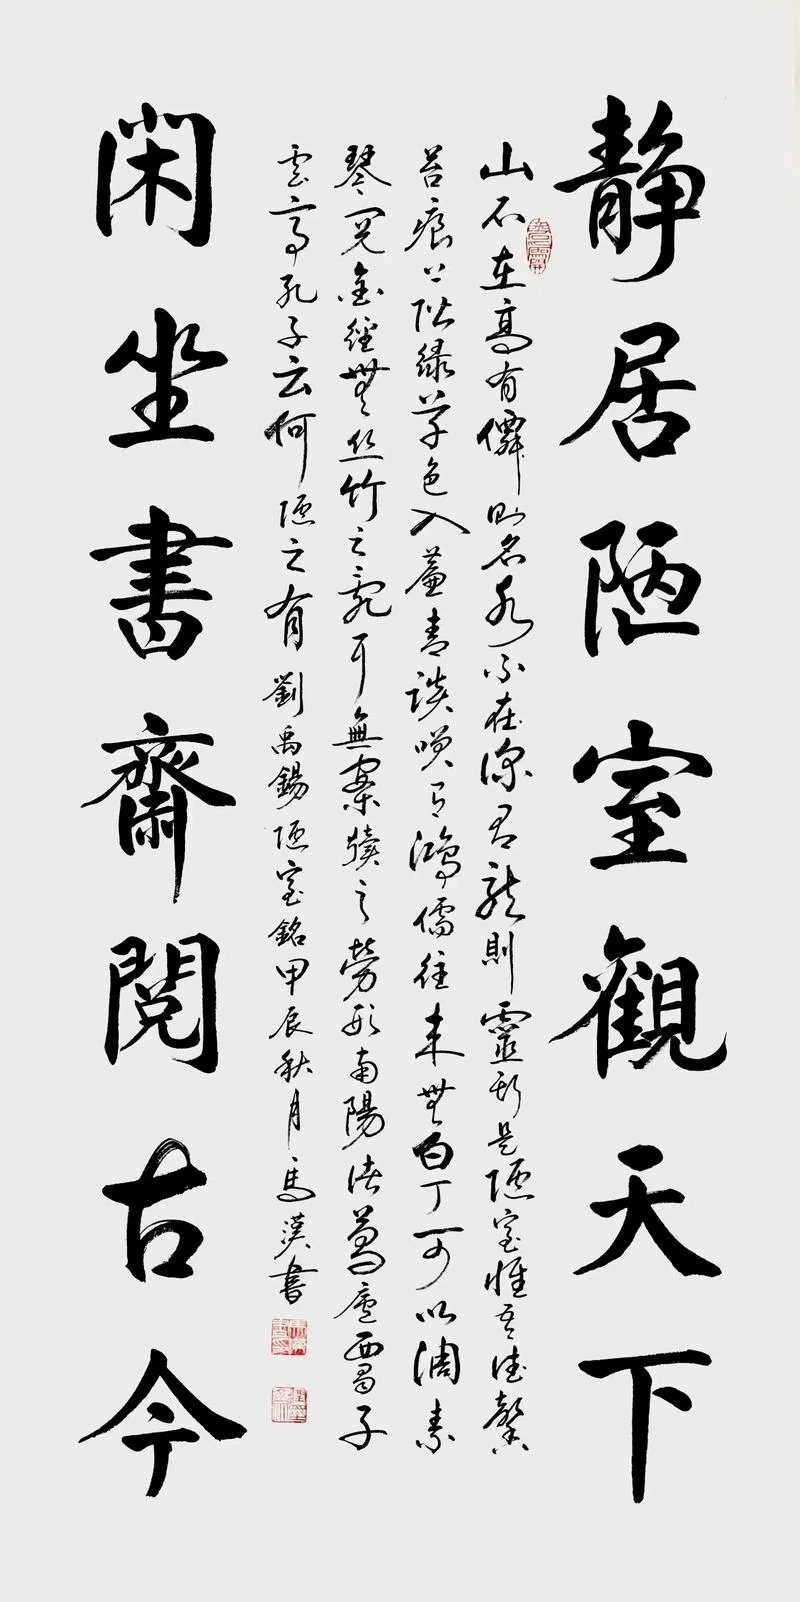 静居陋室觀天下
山不在高有僊則名水不在深有龍則靈斯是陋室惟吾德馨
苔痕上階緑草色入簾青談笑有鴻儒往来無白丁可以調素
琴閲金經無絲竹之亂耳無案牘之勞形南陽諸葛廬西蜀子
雲亭孔子云何陋之有劉禹錫陋室銘甲辰秋月馬漢書
閑坐書齋閲古今